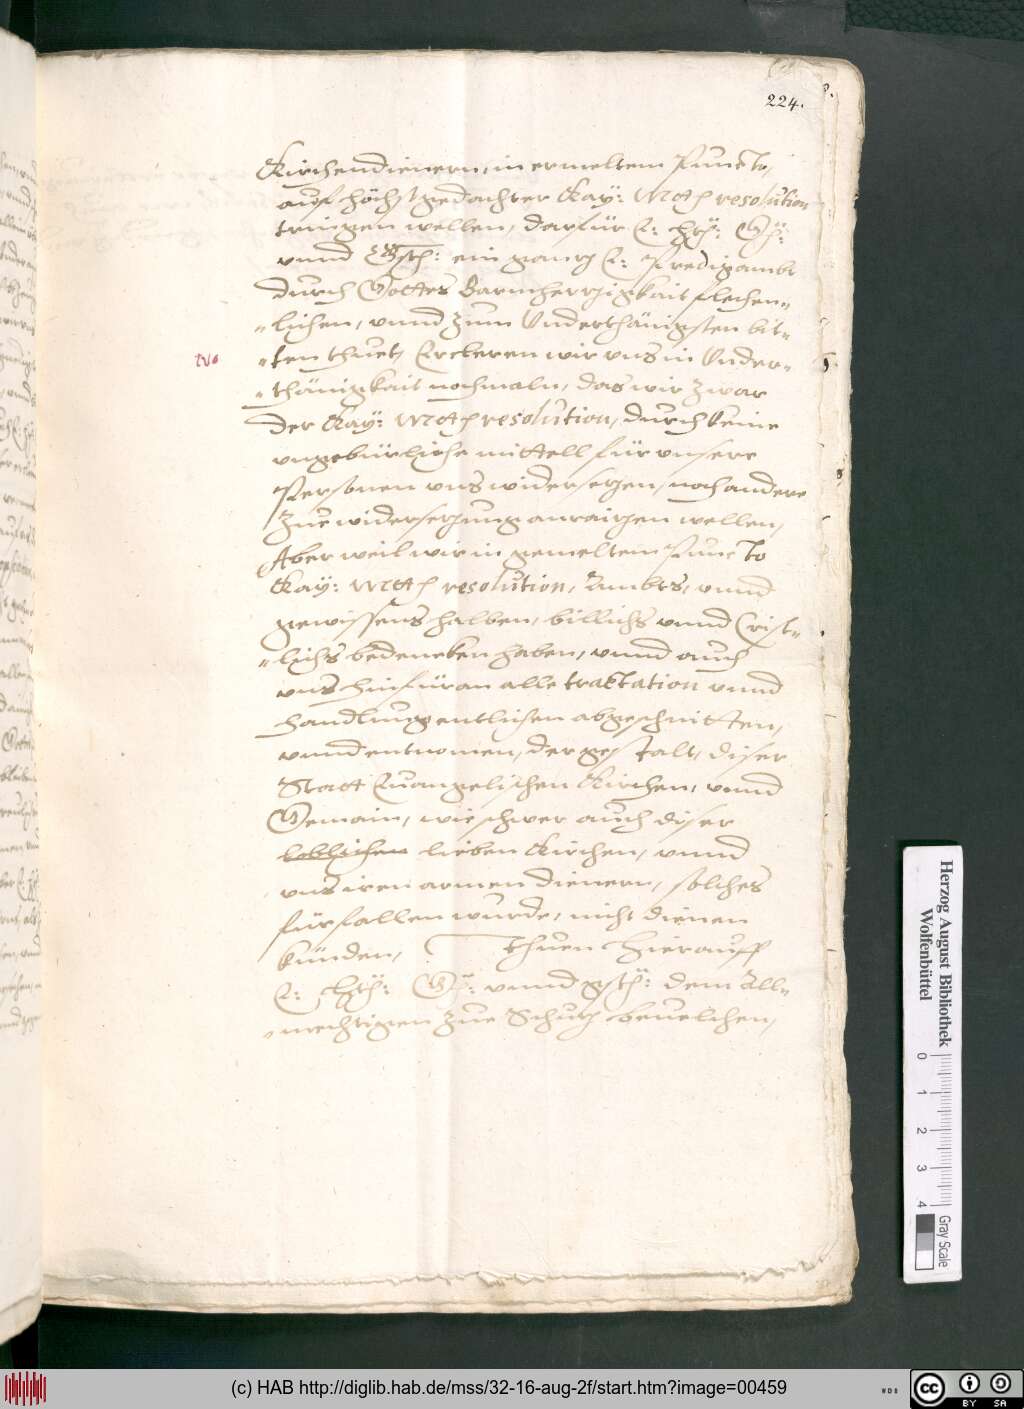 224.
Kirchendienern, in ermeltem Puncto,
auf höchstgedachter Kay: Mtt resolution
tringen wellen, darfür E: Hr: G:
vnnd Gst: ein gantz E: Predigambt
durch Gottes Barmhertzigkait flehen=
=lichen, vnnd zum Vnderthänigsten bit=
=ten thuet, Ercleren wir vns in Vnder=
=thänigkait nochmaln, das wir zwar
der Kay: Mtt resolution, durch keine
vngebürliche mittell für vnsere
Personen vns widersetzen, noch andere
zue widersetzung anraitzen wellen,
Aber weil wir in gemeltem Puncto
Kay: Mtt resolution, Ambts, vnnd
gewissens halben, billichs vnnd Crist=
=lichs bedencken haben, vnnd auch
vns hinfüran alle tractation vnnd
handlung entlichen abgeschnitten,
vnnd entnomen, dergestalt, diser
Statt Euangelischen Kirchen, vnnd
Gemain, wie schwer auch diser
loblichen lieben Kirchen, vnnd
vns iren armen dienern, solches
fürfallen wurde, nicht dienen
künden, thuen hierauff
E: Hr: G: vnnd gst: dem All=
=mechtigen zue Schutz beuelchen,
Herzog August Bibliothek
Wolfenbüttel
0 1 2 3 4 Gray Scale
(c) HAB http://diglib.hab.de/mss/32-16-aug-2f/start.htm?image=00459
WDB
CC BY SA